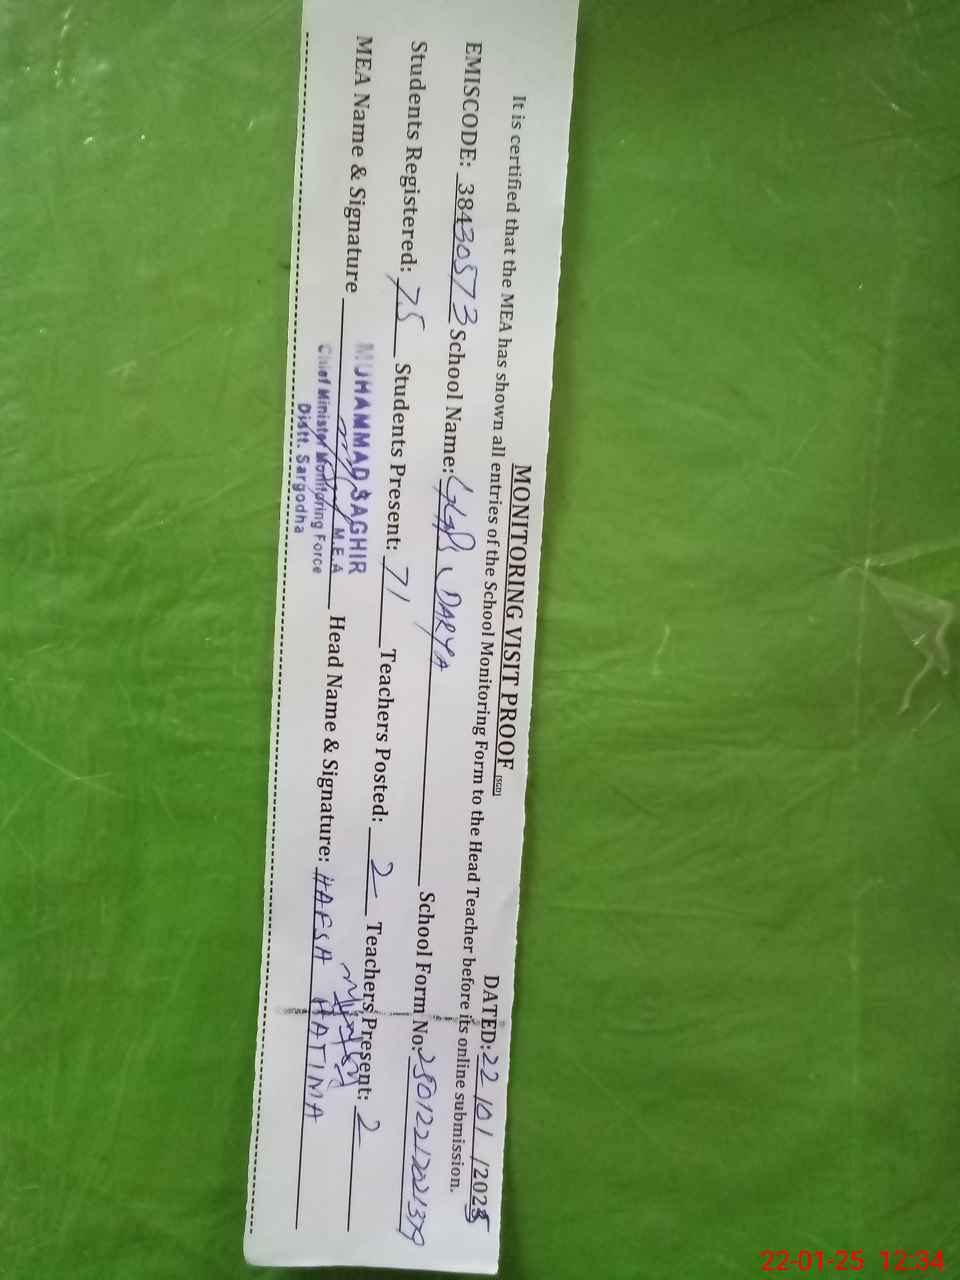 MONITORING VISIT PROOF [SGD] DATED: 22/01/2025
It is certified that the MEA has shown all entries of the School Monitoring Form to the Head Teacher before its online submission.
EMISCODE: 38430573 School Name: DARYA School Form No:
Students Registered: 75 Students Present: 71 Teachers Posted: 2 Teachers Present: 2
MEA Name & Signature Head Name & Signature: HAFSA HATIMA
MUHAMMAD SAGHIR
M.E.A
Chief Minister Monitoring Force
Distt. Sargodha
22-01-25 12:34